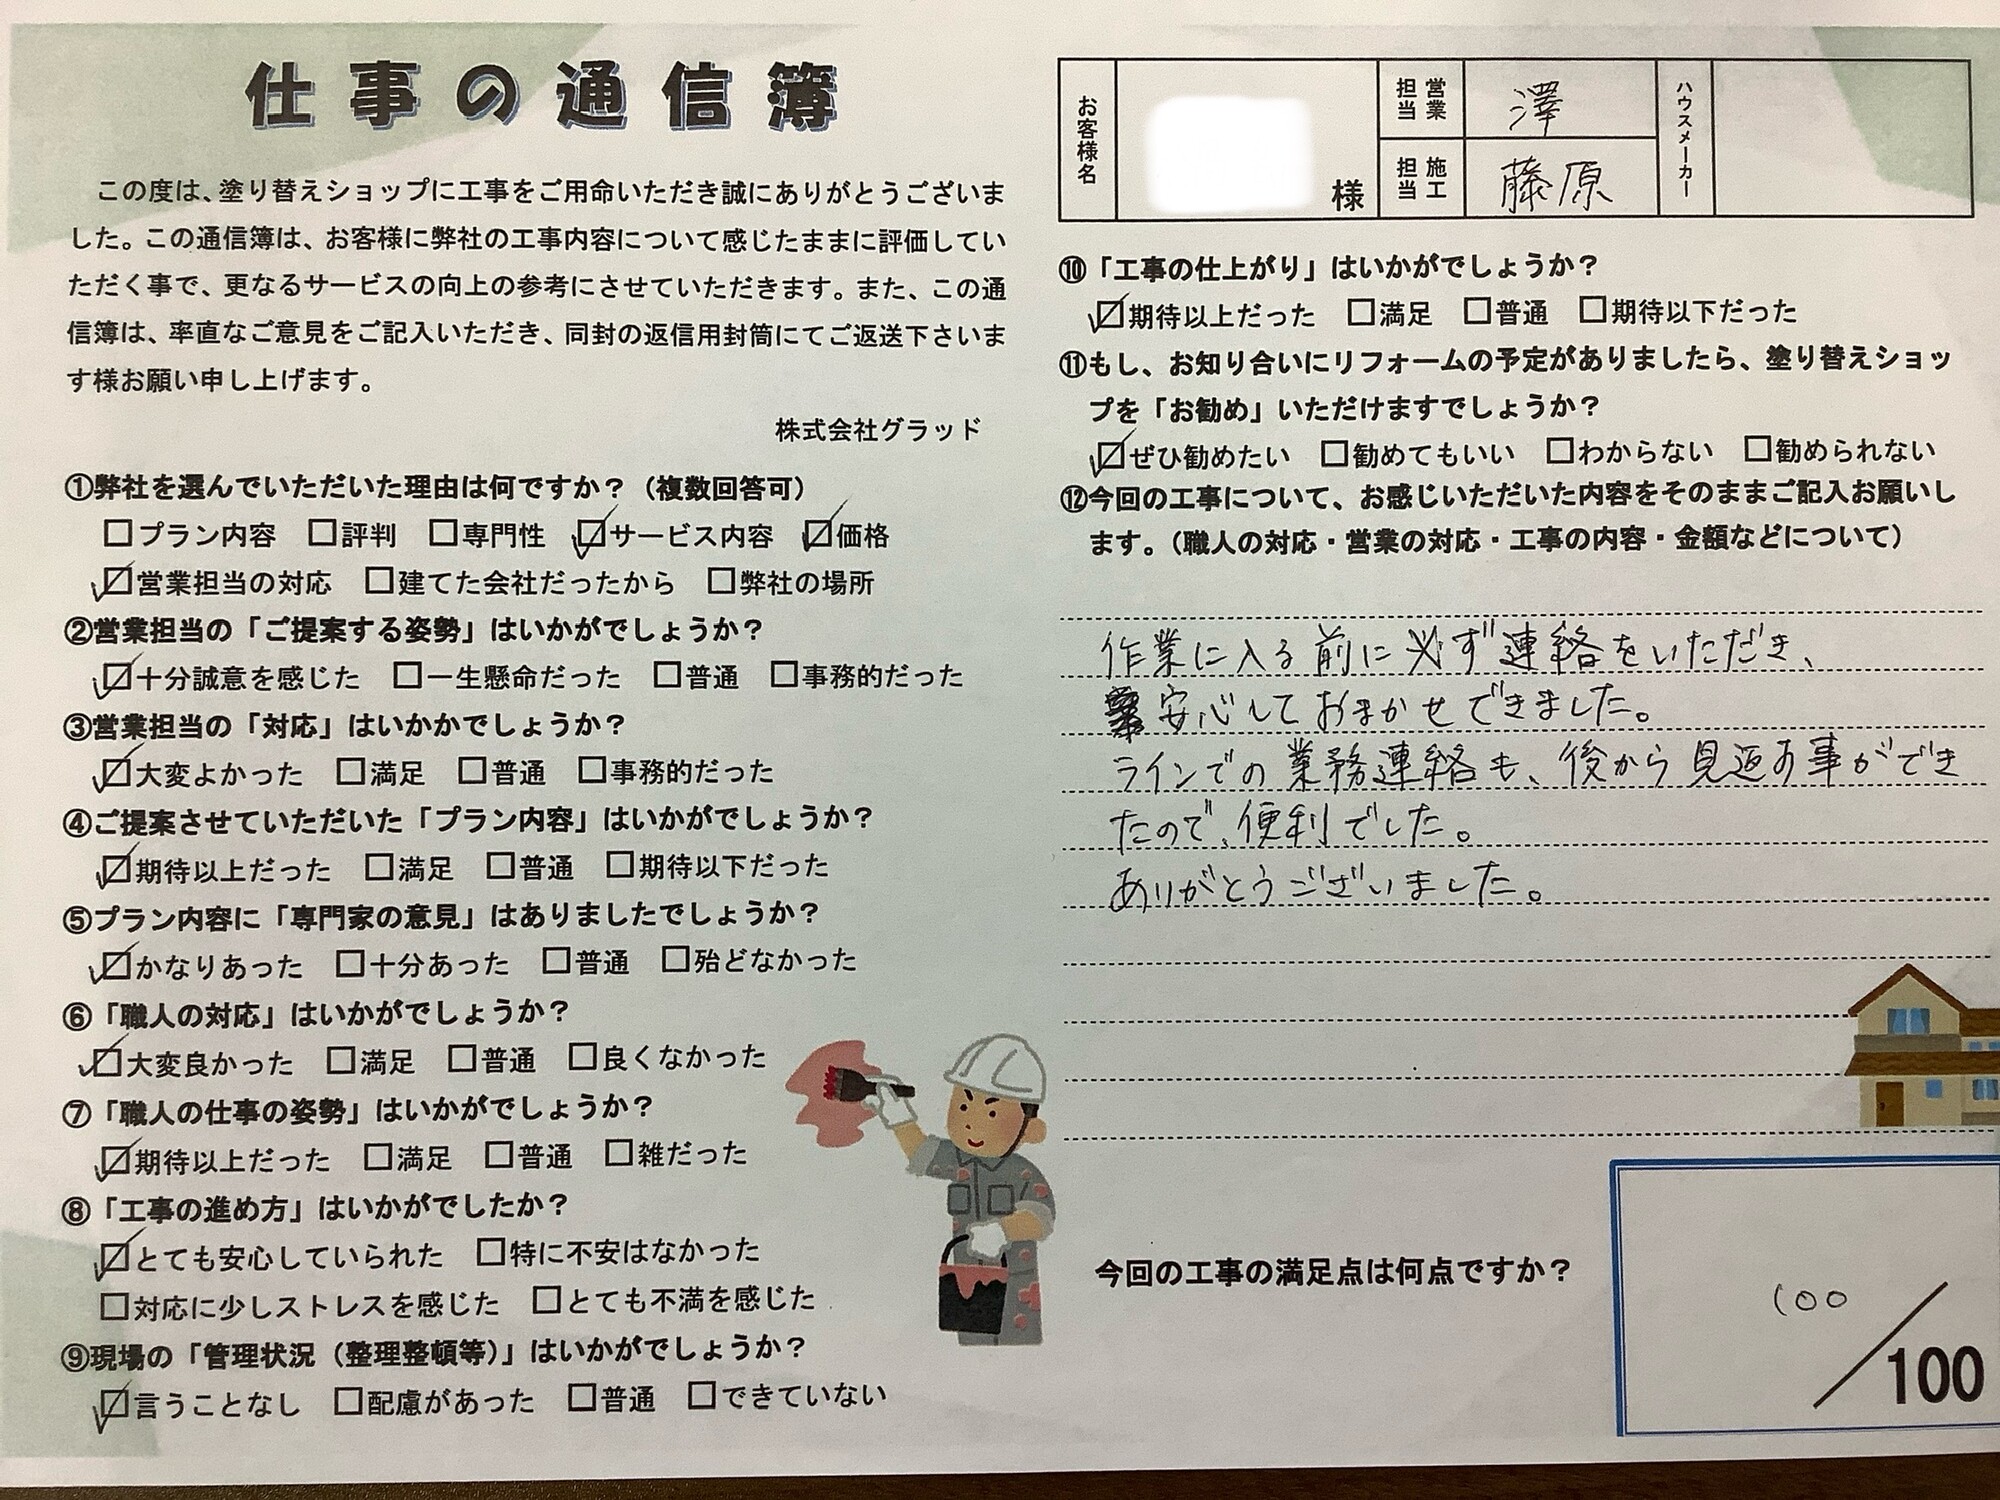 仕事の通信簿
この度は、塗り替えショップに工事をご用命いただき誠にありがとうございま
した。この通信簿は、お客様に弊社の工事内容について感じたままに評価してい
ただく事で、更なるサービスの向上の参考にさせていただきます。また、この通
信簿は、率直なご意見をご記入いただき、同封の返信用封筒にてご返送下さいま
す様お願い申し上げます。
株式会社グラッド
①弊社を選んでいただいた理由は何ですか？（複数回答可）
□プラン内容 □評判 □専門性 ☑サービス内容 ☑価格
☑営業担当の対応 □建てた会社だったから □弊社の場所
②営業担当の「ご提案する姿勢」はいかがでしょうか？
☑十分誠意を感じた □一生懸命だった □普通 □事務的だった
③営業担当の「対応」はいかかでしょうか？
☑大変よかった □満足 □普通 □事務的だった
④ご提案させていただいた「プラン内容」はいかがでしょうか？
☑期待以上だった □満足 □普通 □期待以下だった
⑤プラン内容に「専門家の意見」はありましたでしょうか？
☑かなりあった □十分あった □普通 □殆どなかった
⑥「職人の対応」はいかがでしょうか？
☑大変良かった □満足 □普通 □良くなかった
⑦「職人の仕事の姿勢」はいかがでしょうか？
☑期待以上だった □満足 □普通 □雑だった
⑧「工事の進め方」はいかがでしたか？
☑とても安心していられた □特に不安はなかった
□対応に少しストレスを感じた □とても不満を感じた
⑨現場の「管理状況（整理整頓等）」はいかがでしょうか？
☑言うことなし □配慮があった □普通 □できていない
お客様名 様 営業担当 澤 ハウスメーカー
施工担当 藤原
⑩「工事の仕上がり」はいかがでしょうか？
☑期待以上だった □満足 □普通 □期待以下だった
⑪もし、お知り合いにリフォームの予定がありましたら、塗り替えショッ
プを「お勧め」いただけますでしょうか？
☑ぜひ勧めたい □勧めてもいい □わからない □勧められない
⑫今回の工事について、お感じいただいた内容をそのままご記入お願いし
ます。（職人の対応・営業の対応・工事の内容・金額などについて）
作業に入る前に必ず連絡をいただき、
安心しておまかせできました。
ラインでの業務連絡も、後から見返す事ができ
たので、便利でした。
ありがとうございました。
今回の工事の満足点は何点ですか？
100/100